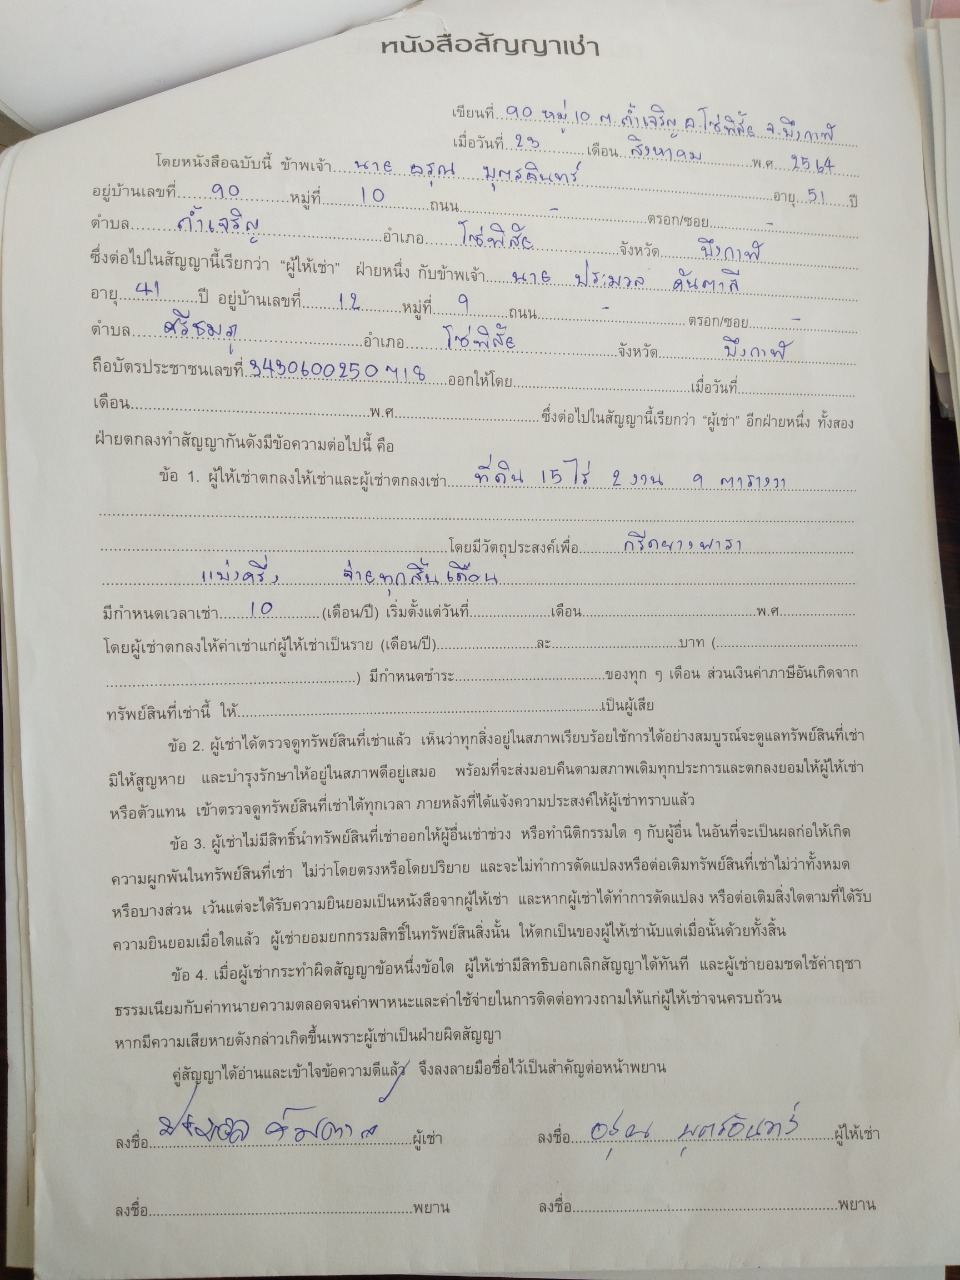 หนังสือสัญญาเช่า
เขียนที่ 90 หมู่ 10 ต.ถ้ำเจริญ อ.โซ่พิสัย จ.บึงกาฬ
เมื่อวันที่ 23 เดือน สิงหาคม พ.ศ. 2564
โดยหนังสือฉบับนี้ ข้าพเจ้า นาย อรุณ บุตรอินทร์ อายุ 51 ปี
อยู่บ้านเลขที่ 90 หมู่ที่ 10 ถนน - ตรอก/ซอย -
ตำบล ถ้ำเจริญ อำเภอ โซ่พิสัย จังหวัด บึงกาฬ
ซึ่งต่อไปในสัญญานี้เรียกว่า “ผู้ให้เช่า” ฝ่ายหนึ่ง กับข้าพเจ้า นาย ประมวล
อายุ 41 ปี อยู่บ้านเลขที่ 12 หมู่ที่ 9 ถนน - ตรอก/ซอย -
ตำบล ศรีชมภู อำเภอ โซ่พิสัย จังหวัด บึงกาฬ
ถือบัตรประชาชนเลขที่ 3430600250718 ออกให้โดย เมื่อวันที่
เดือน พ.ศ. ซึ่งต่อไปในสัญญานี้เรียกว่า “ผู้เช่า” อีกฝ่ายหนึ่ง ทั้งสอง
ฝ่ายตกลงทำสัญญากันดังมีข้อความต่อไปนี้ คือ
ข้อ 1. ผู้ให้เช่าตกลงให้เช่าและผู้เช่าตกลงเช่า ที่ดิน 15 ไร่ 2 งาน 9 ตารางวา
โดยมีวัตถุประสงค์เพื่อ กรีดยางพารา
แบ่งครึ่ง จ่ายทุกสิ้นเดือน
มีกำหนดเวลาเช่า 10 (เดือน/ปี) เริ่มตั้งแต่วันที่ เดือน พ.ศ.
โดยผู้เช่าตกลงให้ค่าเช่าแก่ผู้ให้เช่าเป็นราย (เดือน/ปี) ละ บาท (
) มีกำหนดชำระ ของทุก ๆ เดือน ส่วนเงินค่าภาษีอันเกิดจาก
ทรัพย์สินที่เช่านี้ ให้ เป็นผู้เสีย
ข้อ 2. ผู้เช่าได้ตรวจดูทรัพย์สินที่เช่าแล้ว เห็นว่าทุกสิ่งอยู่ในสภาพเรียบร้อยใช้การได้อย่างสมบูรณ์จะดูแลทรัพย์สินที่เช่า
มิให้สูญหาย และบำรุงรักษาให้อยู่ในสภาพดีอยู่เสมอ พร้อมที่จะส่งมอบคืนตามสภาพเดิมทุกประการและตกลงยอมให้ผู้ให้เช่า
หรือตัวแทน เข้าตรวจดูทรัพย์สินที่เช่าได้ทุกเวลา ภายหลังที่ได้แจ้งความประสงค์ให้ผู้เช่าทราบแล้ว
ข้อ 3. ผู้เช่าไม่มีสิทธิ์นำทรัพย์สินที่เช่าออกให้ผู้อื่นเช่าช่วง หรือทำนิติกรรมใด ๆ กับผู้อื่น ในอันที่จะเป็นผลก่อให้เกิด
ความผูกพันในทรัพย์สินที่เช่า ไม่ว่าโดยตรงหรือโดยปริยาย และจะไม่ทำการดัดแปลงหรือต่อเติมทรัพย์สินที่เช่าไม่ว่าทั้งหมด
หรือบางส่วน เว้นแต่จะได้รับความยินยอมเป็นหนังสือจากผู้ให้เช่า และหากผู้เช่าได้ทำการดัดแปลง หรือต่อเติมสิ่งใดตามที่ได้รับ
ความยินยอมเมื่อใดแล้ว ผู้เช่ายอมยกกรรมสิทธิ์ในทรัพย์สินสิ่งนั้น ให้ตกเป็นของผู้ให้เช่านับแต่เมื่อนั้นด้วยทั้งสิ้น
ข้อ 4. เมื่อผู้เช่ากระทำผิดสัญญาข้อหนึ่งข้อใด ผู้ให้เช่ามีสิทธิบอกเลิกสัญญาได้ทันที และผู้เช่ายอมชดใช้ค่าฤชา
ธรรมเนียมกับค่าทนายความตลอดจนค่าพาหนะและค่าใช้จ่ายในการติดต่อทวงถามให้แก่ผู้ให้เช่าจนครบถ้วน
หากมีความเสียหายดังกล่าวเกิดขึ้นเพราะผู้เช่าเป็นฝ่ายผิดสัญญา
คู่สัญญาได้อ่านและเข้าใจข้อความดีแล้ว จึงลงลายมือชื่อไว้เป็นสำคัญต่อหน้าพยาน
ลงชื่อ ประมวล ผู้เช่า ลงชื่อ อรุณ บุตรอินทร์ ผู้ให้เช่า
ลงชื่อ พยาน ลงชื่อ พยาน